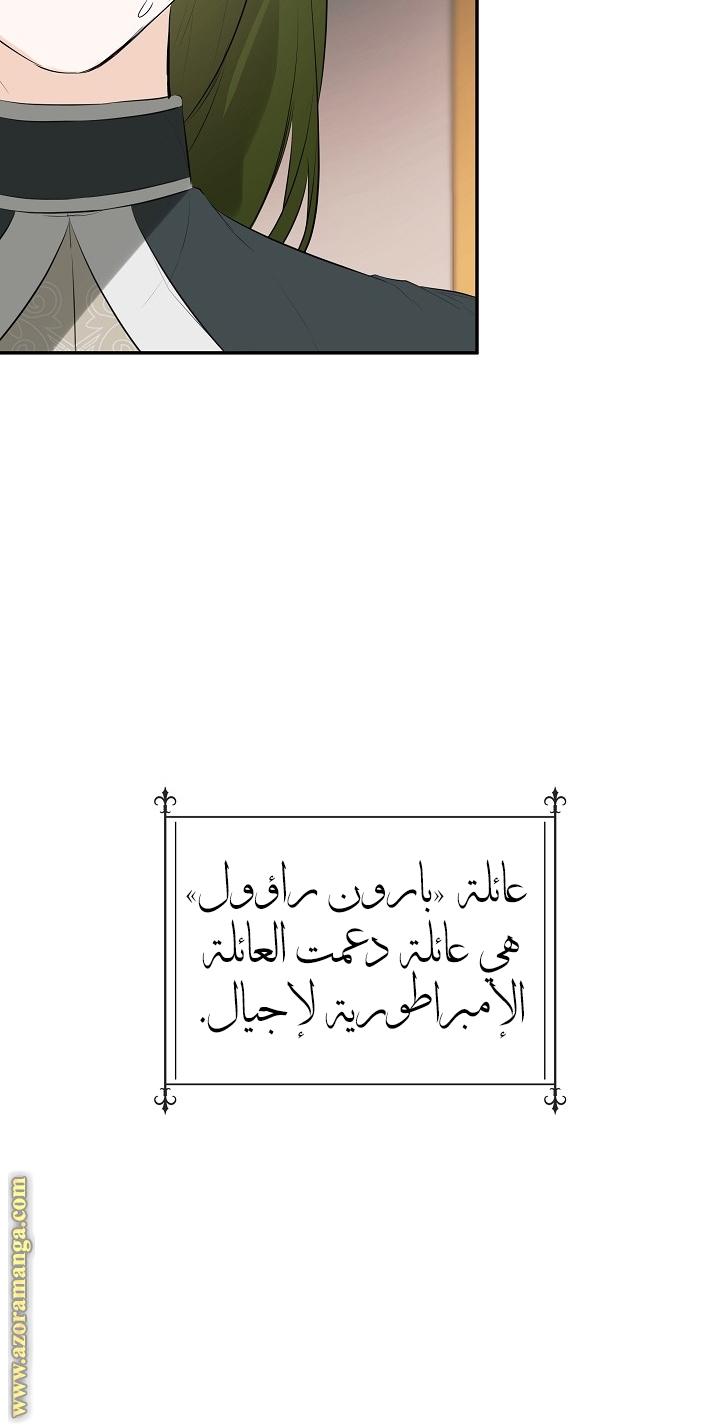 عائلة «بارون راؤول»
هي عائلة دعمت العائلة
الإمبراطورية لأجيال.
www.azoramanga.com